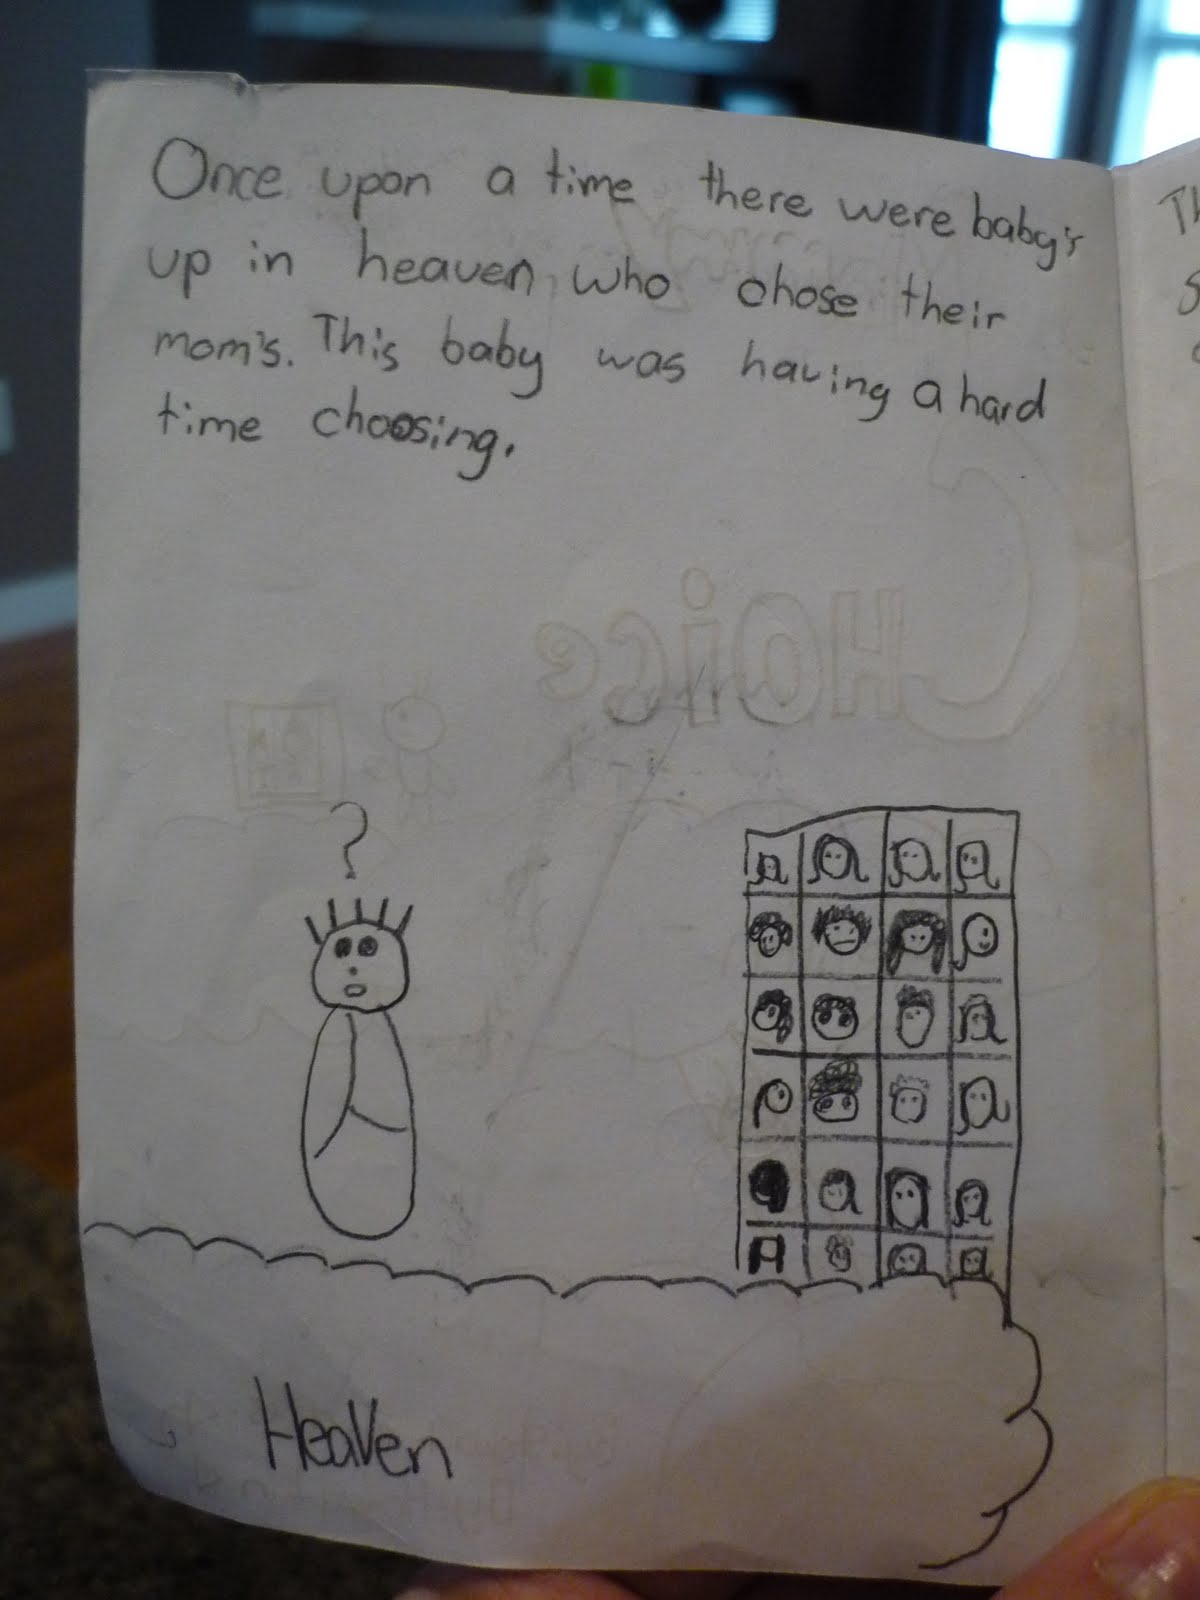 Once upon a time there were baby's
up in heaven who chose their
mom's. This baby was having a hard
time choosing.
CHOice
?
Heaven